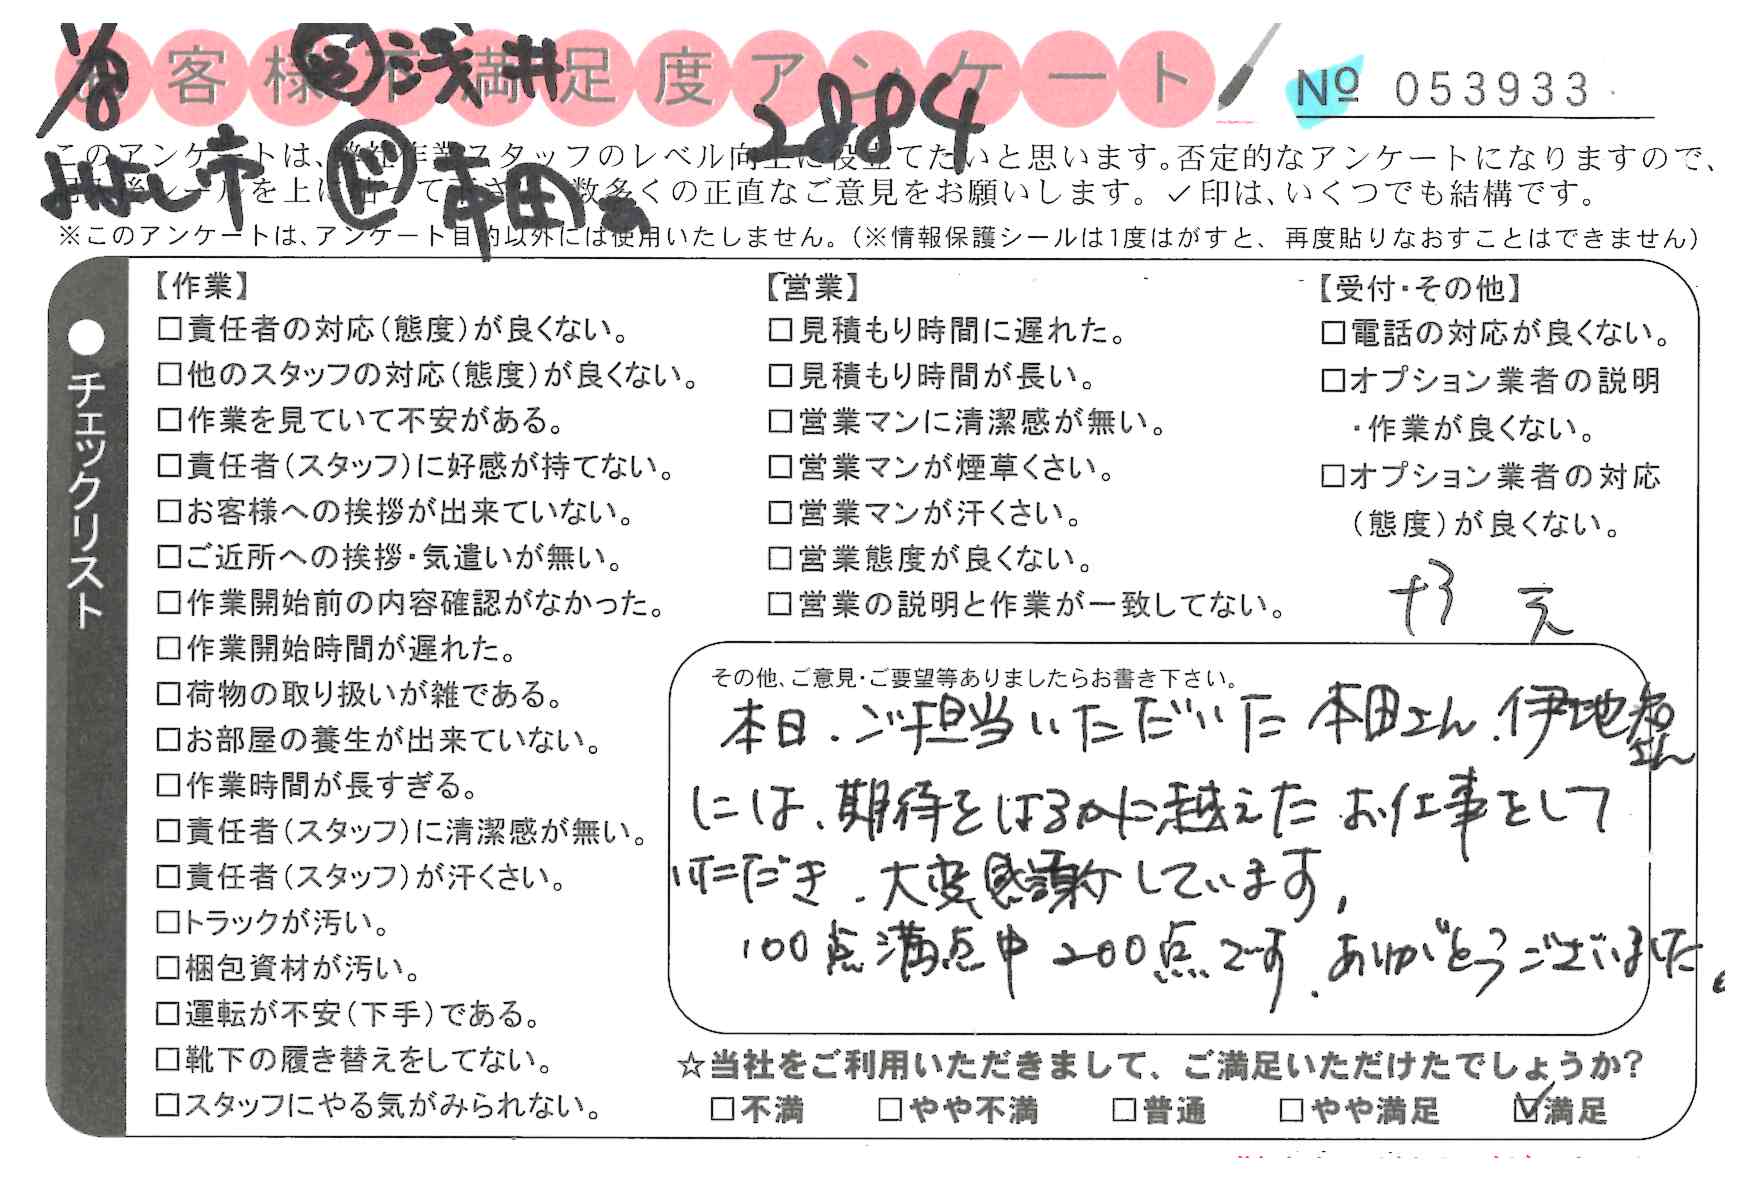 1/8 浅井
お客様不満足度アンケート
2884
№ 053933
このアンケートは、弊社作業スタッフのレベル向上に役立てたいと思います。否定的なアンケートになりますので、
記入後シールを上に貼って下さい。数多くの正直なご意見をお願いします。✓印は、いくつでも結構です。
よねざし市 ド 本田
※このアンケートは、アンケート目的以外には使用いたしません。（※情報保護シールは1度はがすと、再度貼りなおすことはできません）
●チェックリスト
【作業】
□責任者の対応（態度）が良くない。
□他のスタッフの対応（態度）が良くない。
□作業を見ていて不安がある。
□責任者（スタッフ）に好感が持てない。
□お客様への挨拶が出来ていない。
□ご近所への挨拶・気遣いが無い。
□作業開始前の内容確認がなかった。
□作業開始時間が遅れた。
□荷物の取り扱いが雑である。
□お部屋の養生が出来ていない。
□作業時間が長すぎる。
□責任者（スタッフ）に清潔感が無い。
□責任者（スタッフ）が汗くさい。
□トラックが汚い。
□梱包資材が汚い。
□運転が不安（下手）である。
□靴下の履き替えをしてない。
□スタッフにやる気がみられない。
【営業】
□見積もり時間に遅れた。
□見積もり時間が長い。
□営業マンに清潔感が無い。
□営業マンが煙草くさい。
□営業マンが汗くさい。
□営業態度が良くない。
□営業の説明と作業が一致してない。
【受付・その他】
□電話の対応が良くない。
□オプション業者の説明
・作業が良くない。
□オプション業者の対応
（態度）が良くない。
その他、ご意見・ご要望等ありましたらお書き下さい。
本日、ご担当いただいた本田さん、伊地知さん
には、期待をはるかに越えたお仕事をして
いただき、大変感謝しています。
100点満点中200点です。ありがとうございました。
☆当社をご利用いただきまして、ご満足いただけたでしょうか?
□不満 □やや不満 □普通 □やや満足 ☑満足